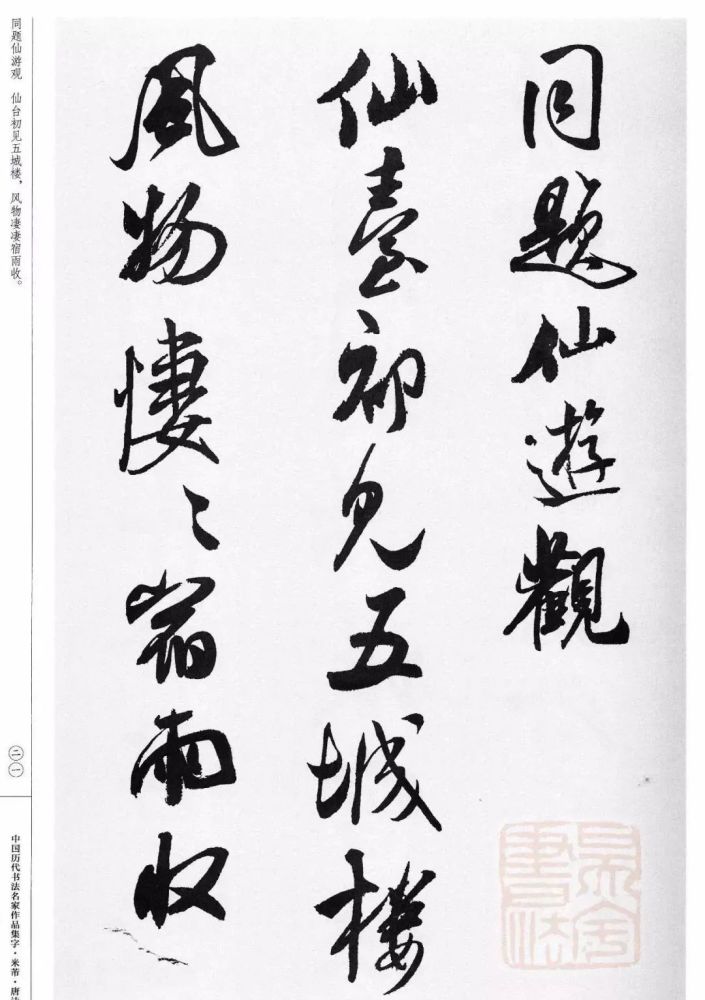 同题仙遊觀
仙臺初见五城楼
风物悽〻宿雨收
同题仙游观　仙台初见五城楼，风物凄凄宿雨收。
二一
中国历代书法名家作品集字·米芾·唐诗